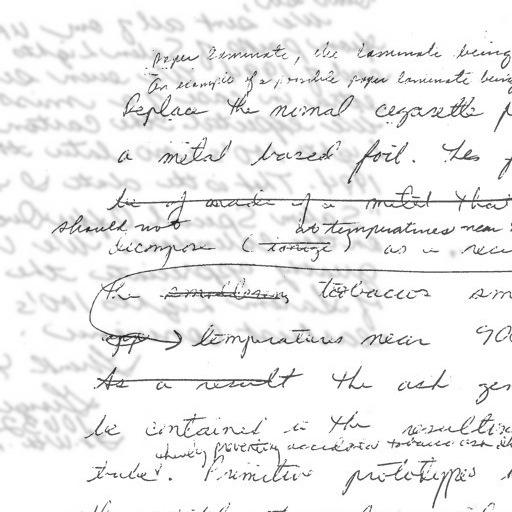 paper laminate, the laminate being
An example of a possible paper laminate being
Replace the normal cegarette p
a metal based foil. Les f
be of made of a metal that
should not at temperatures near
dicompose (ionize) as a resu
the smoldering tobaccos sm
temperatures near 900
As a result the ash gen
be contained in the resultin
whereby preventing accidental tobacco ash
tube. Primitive prototypes